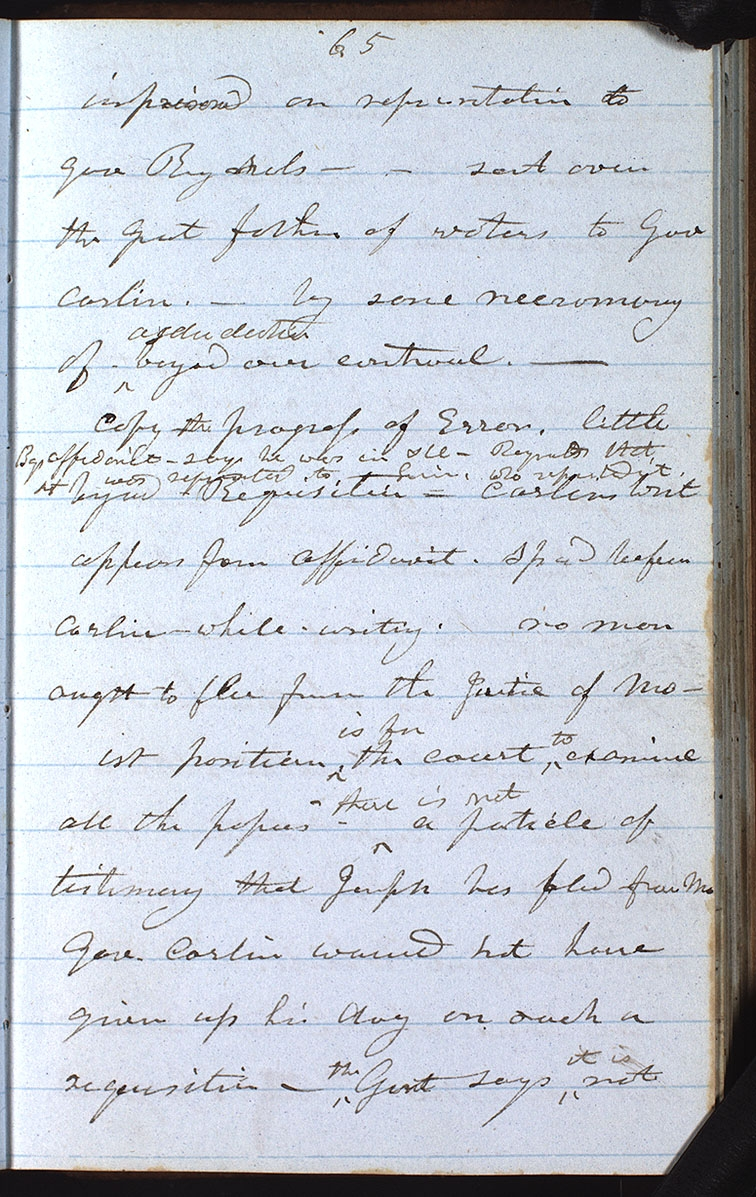 65
on representatin to
gov Reynolds — — sent over
the great father of waters to Gov
Carlin. — by some necromancy
of beyod our controul. —
Copy the progress of Error. little
Bogs affidavit — says he was in Ill — Reynolds that
it was represented to him. who reported it.
Requisitin — Carlins writ
appears from affidavit. before
Carlin — while writing. no man
ought to flee from the Justice of Mo —
is for to
1st position the court examine
there is not
all the papers — a particle of
testimony that Joseph has fled from Mo
Gov. Carlin would not have
given up his dog on such a
the it is
requisitin — Govt says not